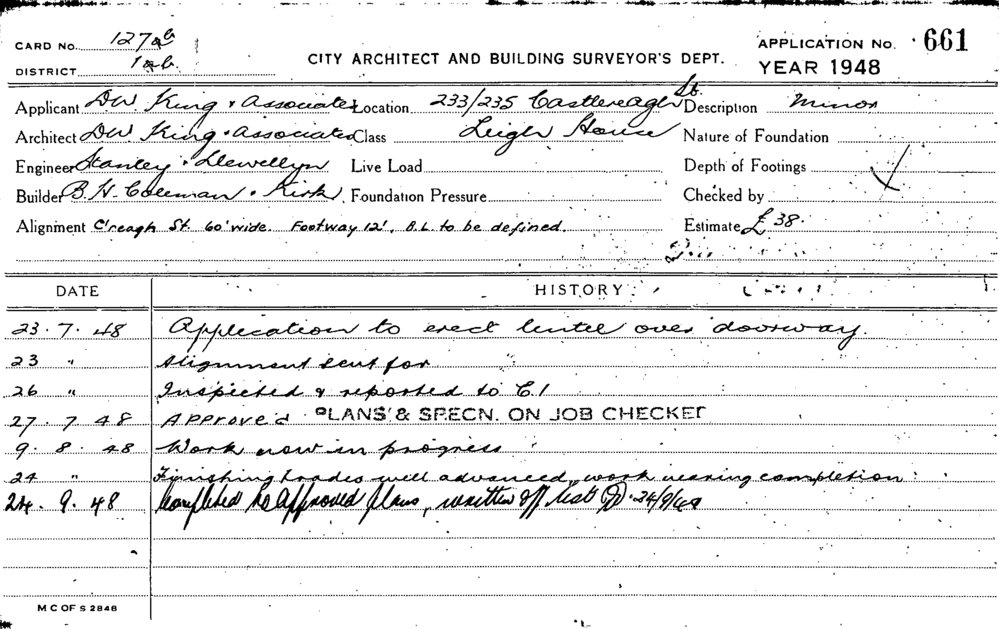 CARD No. 127ab
DISTRICT 1ab.
CITY ARCHITECT AND BUILDING SURVEYOR'S DEPT.
APPLICATION No. 661
YEAR 1948
Applicant DW. King & Associates Location 233/235 Castlereagh St. Description Minor
Architect DW. King & Associates Class Leigh House Nature of Foundation
Engineer Stanley & Llewellyn Live Load Depth of Footings
Builder B. H. Coleman & Kirk. Foundation Pressure Checked by
Alignment C'reagh St. 60' wide. Footway 12', B.L. to be defined. Estimate £ 38.
DATE HISTORY
23.7.48 Application to erect lintel over doorway.
23 " Alignment sent for
26 " Inspected & reported to C.I
27.7.48 Approved PLANS & SPECN. ON JOB CHECKED
9.8.48 Work now in progress
24 " Finishing trades well advanced, work nearing completion
24.9.48 Completed to Approved plans, written off list 24/9/48
M C OF S 2848